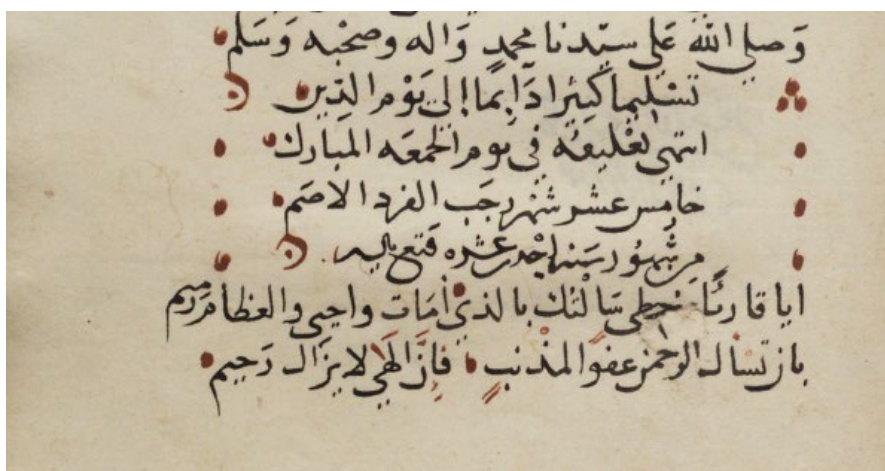 وَصلى الله عَلى سيّدنا محمدٍ وَاله وصحْبه وَسَلم
تسْليما كثيرا دَايما الي يَوْمِ الدّين
انتهي تعْليقهُ في يَوم الجمعَه المبَارك
خامِس عشر شهر رجَب الفرد الاصَم
مِن شهُور سَنة احْدي عشره
ايا قارئًا خطى سَالتك بالذي أمَات واحيى والعظام رَميم
بان تسْأل الرحمن عفوًا لمذْنب فإنَّ الهَي لا يزَال رَحيم